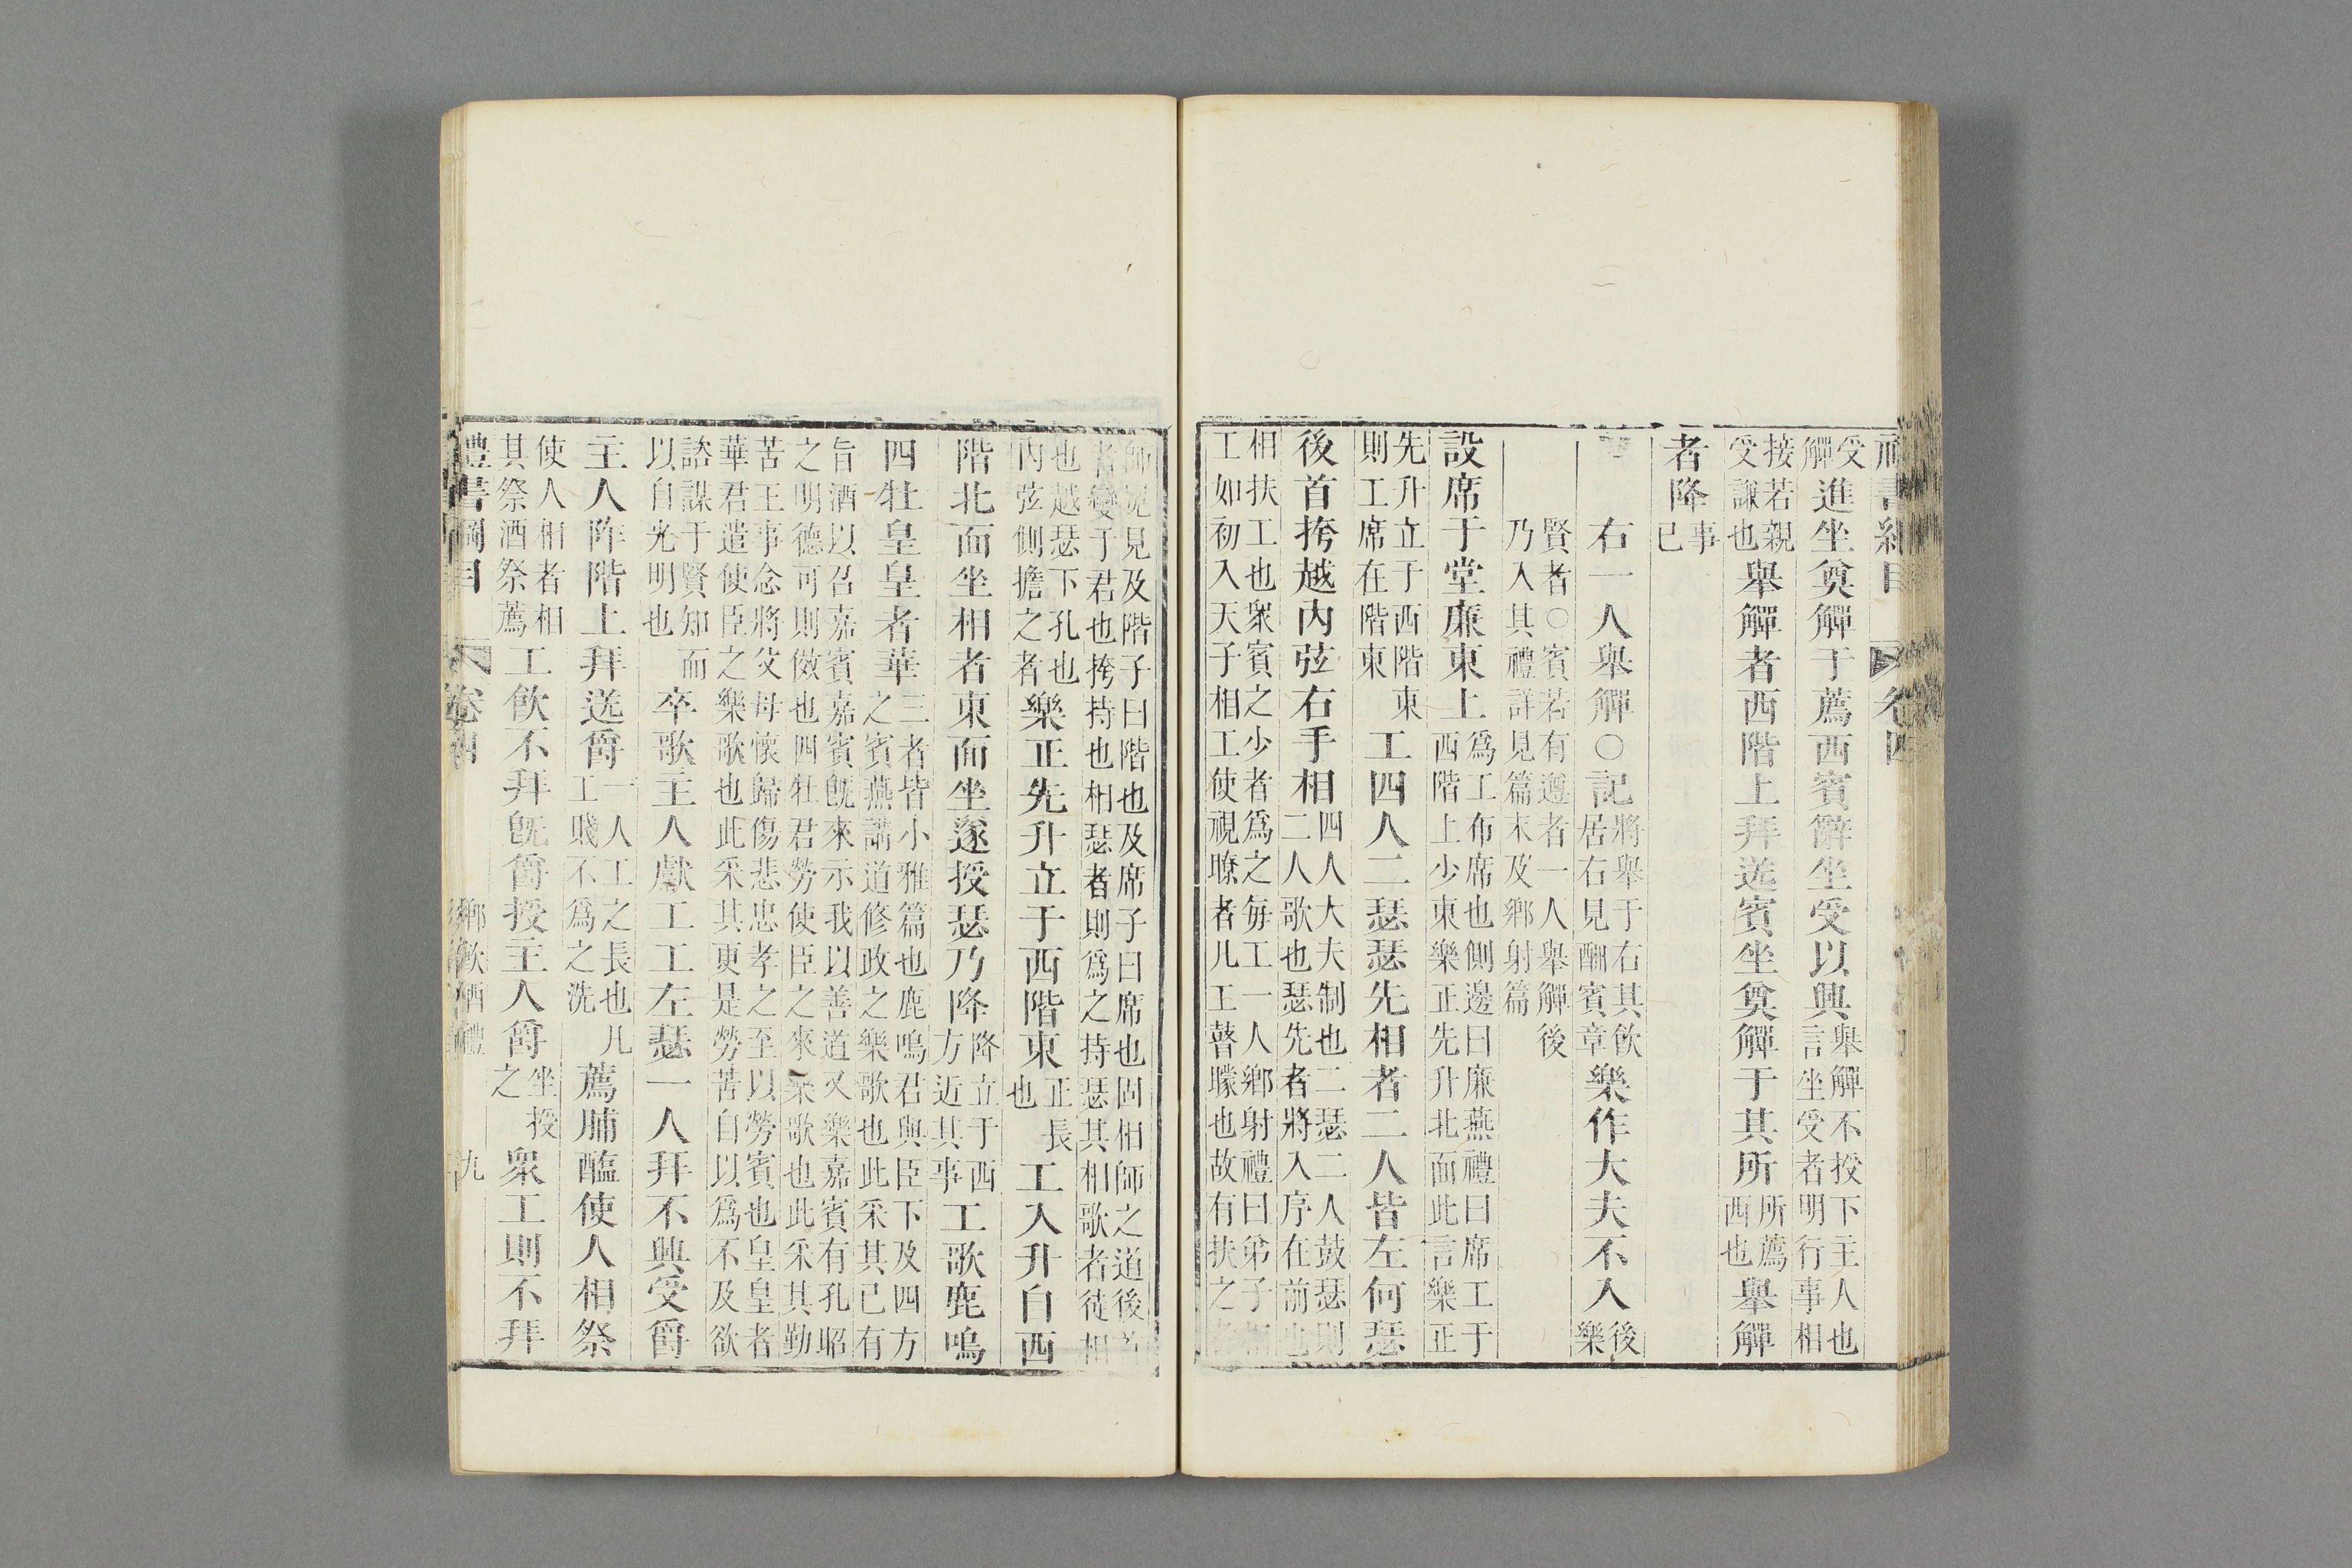 禮書綱目 卷四
受觶進坐奠觶于薦西賓辭坐受以興舉觶不授下主人也言坐受者明行事相
接若親受謙也舉觶者西階上拜送賓坐奠觶于其所所薦西也舉觶
者降事已
右一人舉觶○記將舉于右其飲居右見酬賓章樂作大夫不入後樂
賢者○賓若有遵者一人舉觶後乃入其禮詳見篇末及鄉射篇
設席于堂廉東上為工布席也側邊曰廉燕禮曰席工于西階上少東樂正先升北面此言樂正
先升立于西階東則工席在階東工四人二瑟瑟先相者二人皆左何瑟
後首挎越內弦右手相四人大夫制也二瑟二人鼓瑟則二人歌也瑟先者將入序在前也
相扶工也衆賓之少者為之每工一人鄉射禮曰弟子相工如初入天子相工使視瞭者凡工瞽矇也故有扶之者
師冕見及階子曰階也及席子曰席也固相師之道後首者變于君也挎持也相瑟者則為之持瑟其相歌者徒相
也越瑟下孔也內弦側擔之者樂正先升立于西階東正長也工入升自西
階北面坐相者東面坐遂授瑟乃降降立于西方近其事工歌鹿鳴
四牡皇皇者華三者皆小雅篇也鹿鳴君與臣下及四方之賓燕講道修政之樂歌也此采其已有
旨酒以召嘉賓嘉賓旣來示我以善道又樂嘉賓有孔昭之明德可則傚也四牡君勞使臣之來樂歌也此采其勤
苦王事念將父母懷歸傷悲忠孝之至以勞賓也皇皇者華君遣使臣之樂歌也此采其更是勞苦自以為不及欲
諮謀于賢知而以自光明也卒歌主人獻工工左瑟一人拜不興受爵
主人阼階上拜送爵一人工之長也凡工賤不為之洗薦脯醢使人相祭
使人相者相其祭酒祭薦工飲不拜旣爵授主人爵坐授之衆工則不拜
禮書綱目 卷四 鄉飲酒禮 九